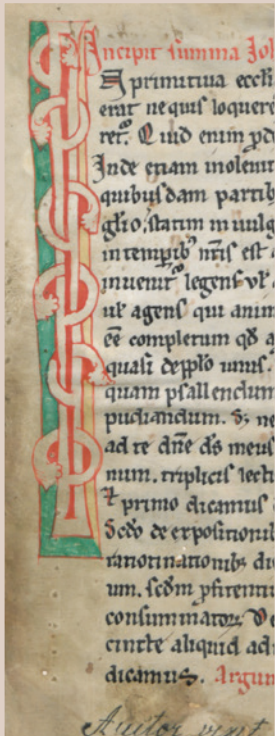 Incipit summa Joh
In primitiua eccli
erat ne quis loquere
ret᷒. Quid enim pd
Inde etiam inoleuit
quibusdam partib
glio, statim in uulg
in temporib nris est
inuenit᷒ legens ul
ul agens qui anim
ee completum qd a
quasi desplo unus.
quam psallendum
pudiandum. S; ne
ad te dne ds meus
num. triplicis lecti
⁊ primo dicamus
Scdo de expositionib
ratiotinationib di
um. scdm pfitentiu
consummatoꝝ De
cinete aliquid adi
dicamus. Argum
Auctor vixit